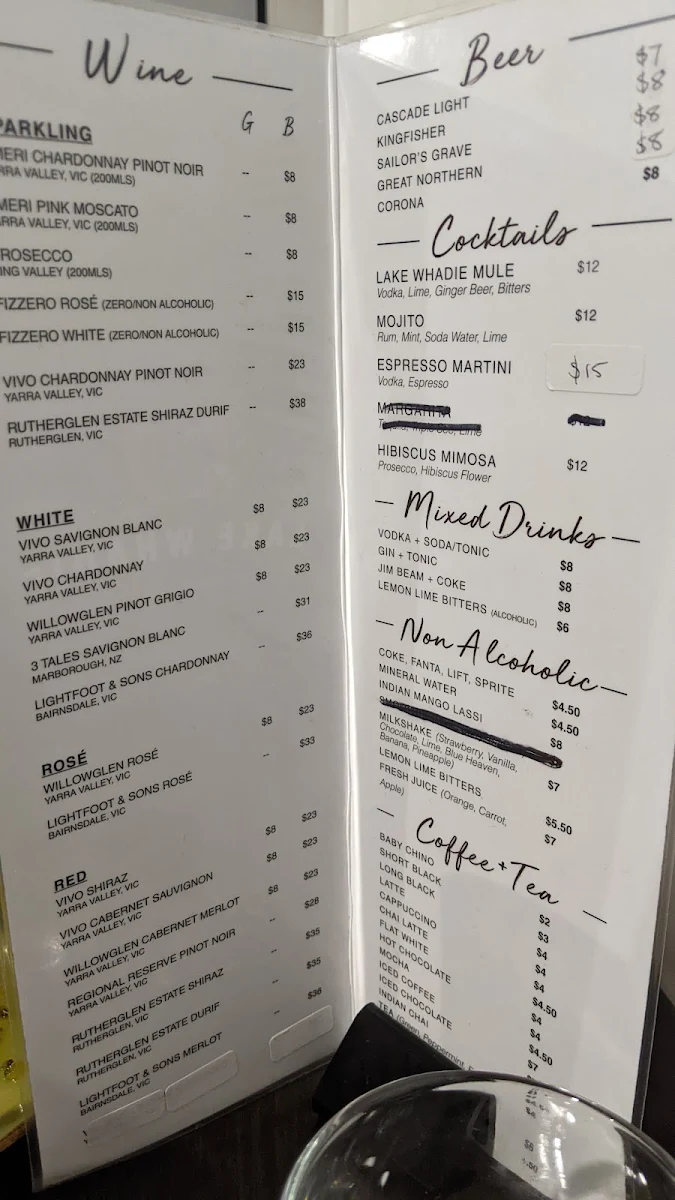 Wine
G B
PARKLING
MERI CHARDONNAY PINOT NOIR -- $8
RRA VALLEY, VIC (200MLS)
MERI PINK MOSCATO -- $8
ARRA VALLEY, VIC (200MLS)
ROSECCO -- $8
ING VALLEY (200MLS)
FIZZERO ROSÉ (ZERO/NON ALCOHOLIC) -- $15
FIZZERO WHITE (ZERO/NON ALCOHOLIC) -- $15
VIVO CHARDONNAY PINOT NOIR -- $23
YARRA VALLEY, VIC
RUTHERGLEN ESTATE SHIRAZ DURIF -- $38
RUTHERGLEN, VIC
WHITE
VIVO SAVIGNON BLANC $8 $23
YARRA VALLEY, VIC
VIVO CHARDONNAY $8 $23
YARRA VALLEY, VIC
WILLOWGLEN PINOT GRIGIO $8 $23
YARRA VALLEY, VIC
3 TALES SAVIGNON BLANC -- $31
MARBOROUGH, NZ
LIGHTFOOT & SONS CHARDONNAY -- $36
BAIRNSDALE, VIC
ROSÉ
WILLOWGLEN ROSÉ $8 $23
YARRA VALLEY, VIC
LIGHTFOOT & SONS ROSÉ -- $33
BAIRNSDALE, VIC
RED
VIVO SHIRAZ $8 $23
YARRA VALLEY, VIC
VIVO CABERNET SAUVIGNON $8 $23
YARRA VALLEY, VIC
WILLOWGLEN CABERNET MERLOT $8 $23
YARRA VALLEY, VIC
REGIONAL RESERVE PINOT NOIR -- $28
YARRA VALLEY, VIC
RUTHERGLEN ESTATE SHIRAZ -- $35
RUTHERGLEN, VIC
RUTHERGLEN ESTATE DURIF -- $35
RUTHERGLEN, VIC
LIGHTFOOT & SONS MERLOT -- $36
BAIRNSDALE, VIC
Beer
CASCADE LIGHT $7
KINGFISHER $8
SAILOR'S GRAVE $8
GREAT NORTHERN $8
CORONA $8
Cocktails
LAKE WHADIE MULE $12
Vodka, Lime, Ginger Beer, Bitters
MOJITO $12
Rum, Mint, Soda Water, Lime
ESPRESSO MARTINI $15
Vodka, Espresso
MARGARITA
HIBISCUS MIMOSA $12
Prosecco, Hibiscus Flower
Mixed Drinks
VODKA + SODA/TONIC $8
GIN + TONIC $8
JIM BEAM + COKE $8
LEMON LIME BITTERS (ALCOHOLIC) $6
Non Alcoholic
COKE, FANTA, LIFT, SPRITE $4.50
MINERAL WATER $4.50
INDIAN MANGO LASSI $8
MILKSHAKE (Strawberry, Vanilla, $7
Chocolate, Lime, Blue Heaven,
Banana, Pineapple)
LEMON LIME BITTERS $5.50
FRESH JUICE (Orange, Carrot, $7
Apple)
Coffee + Tea
BABY CHINO $2
SHORT BLACK $3
LONG BLACK $4
LATTE $4
CAPPUCCINO $4
CHAI LATTE $4.50
FLAT WHITE $4
HOT CHOCOLATE $4
MOCHA $4.50
ICED COFFEE $7
ICED CHOCOLATE
INDIAN CHAI
TEA (Green, Peppermint,